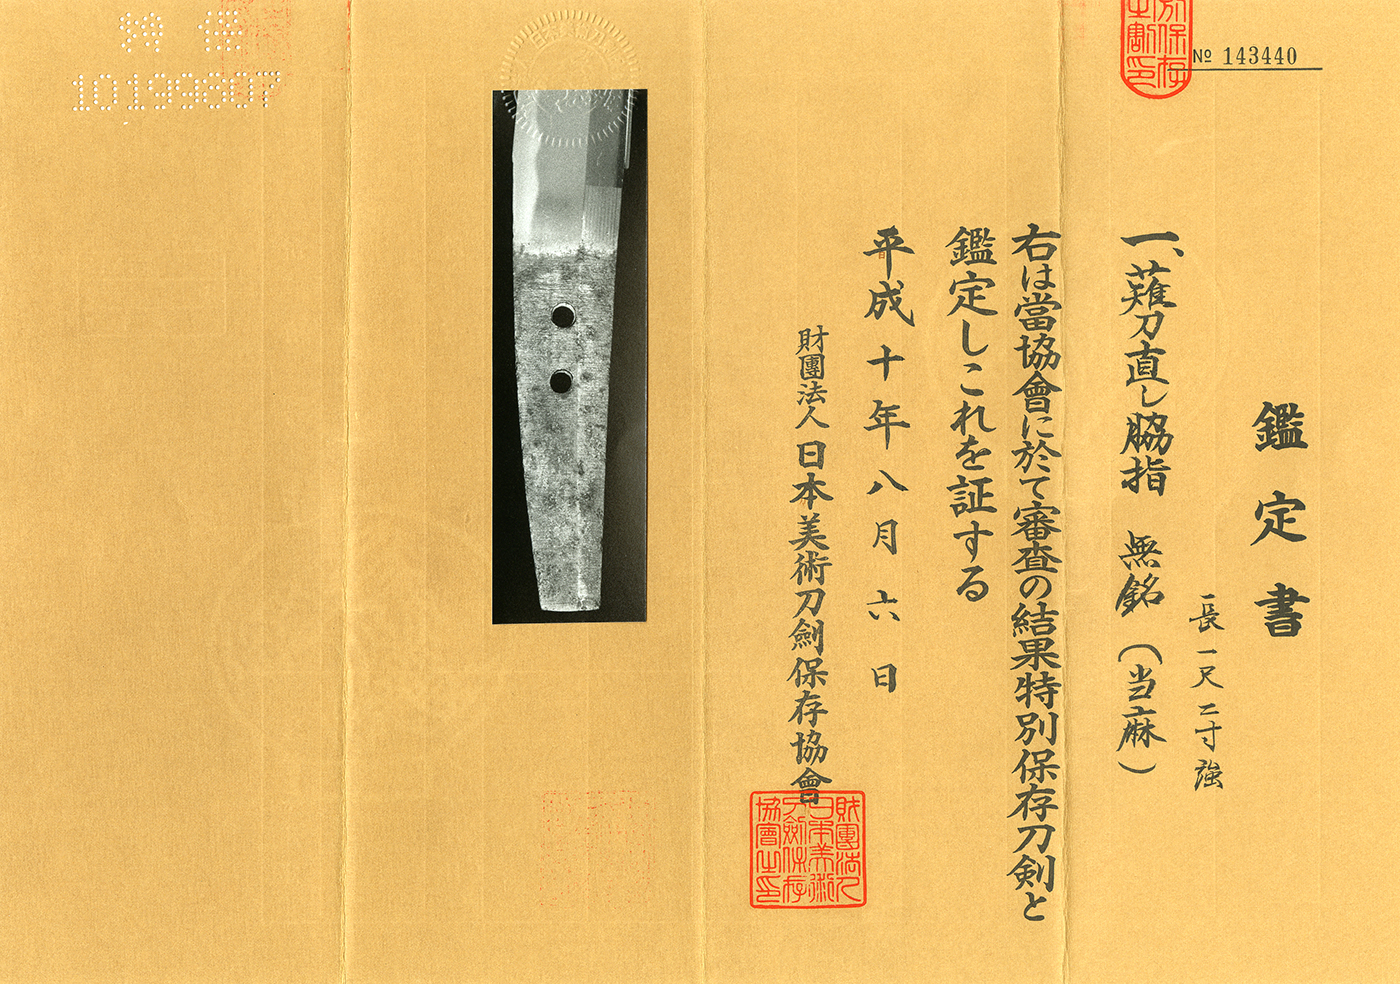 № 143440
鑑定書
長一尺二寸強
一、薙刀直し脇指 無銘(当麻)
右は當協會に於て審査の結果特別保存刀剣と
鑑定しこれを証する
平成十年八月六日
財團法人日本美術刀劍保存協會
財團法人
日本美術
刀劍保存
協會之印
特保
10199807